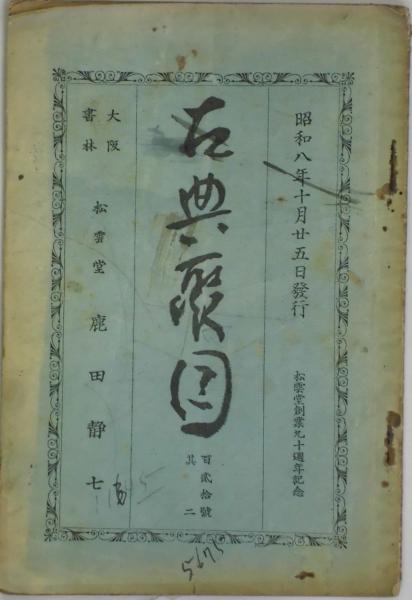 昭和八年十月廿五日發行
松雲堂創業九十週年記念
古典聚目
百貳拾號
其二
大阪
書林
松雲堂 鹿田靜七
5675